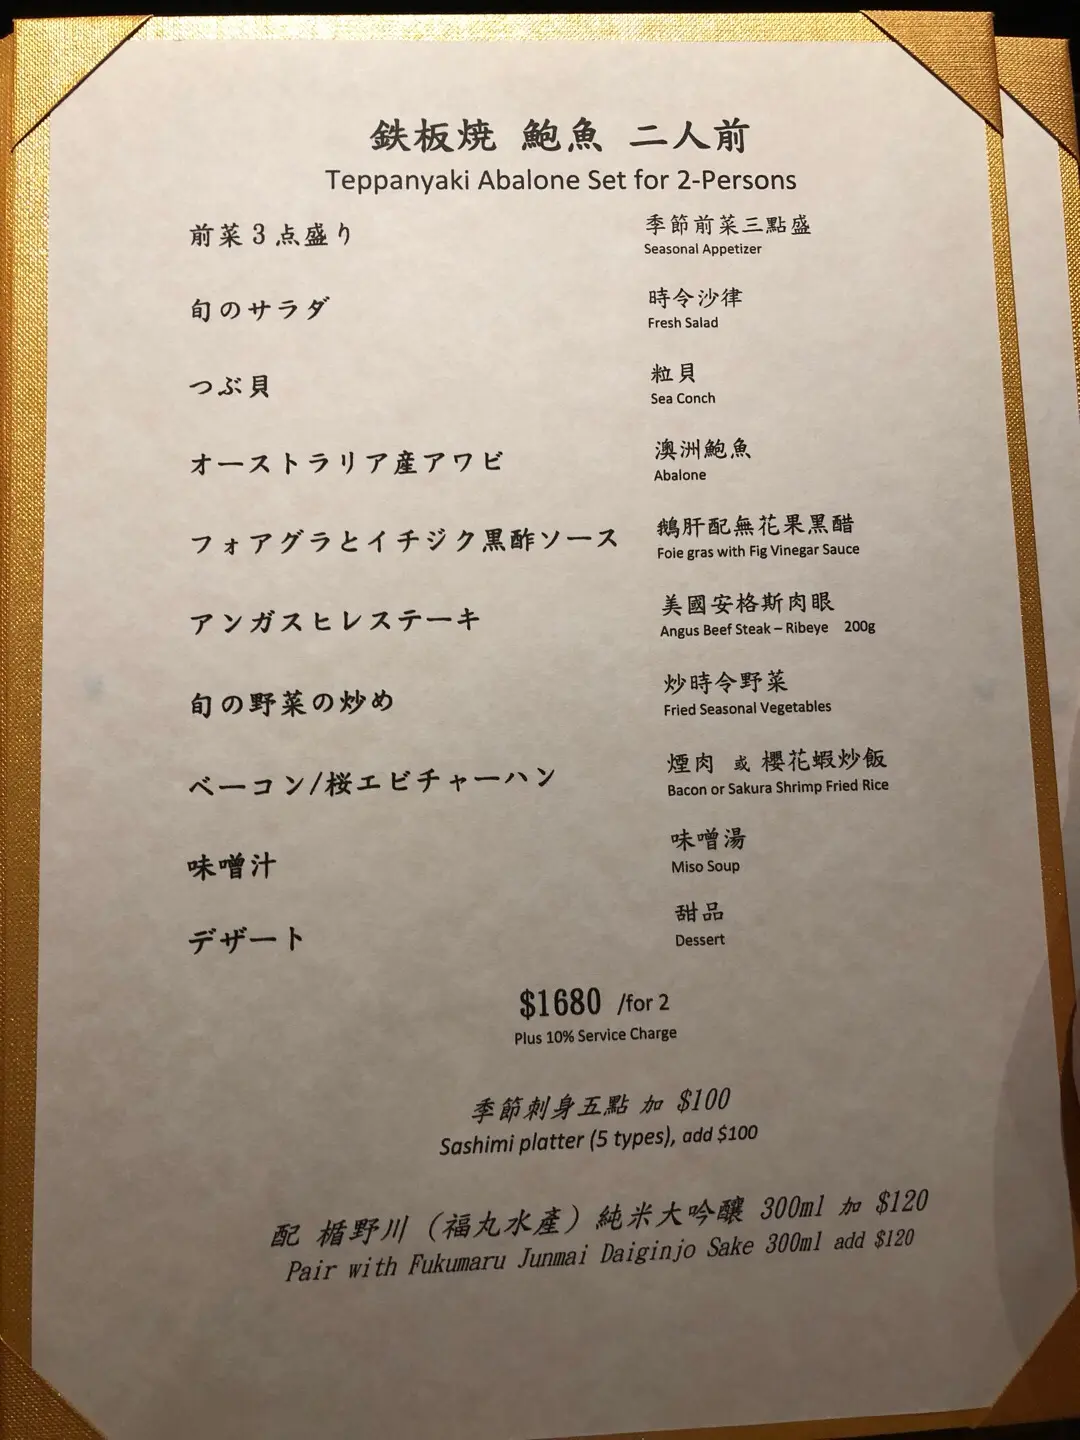 鉄板焼 鮑魚 二人前
Teppanyaki Abalone Set for 2-Persons
前菜3点盛り
季節前菜三點盛
Seasonal Appetizer
旬のサラダ
時令沙律
Fresh Salad
つぶ貝
粒貝
Sea Conch
オーストラリア産アワビ
澳洲鮑魚
Abalone
フォアグラとイチジク黒酢ソース
鵝肝配無花果黑醋
Foie gras with Fig Vinegar Sauce
アンガスヒレステーキ
美國安格斯肉眼
Angus Beef Steak – Ribeye 200g
旬の野菜の炒め
炒時令野菜
Fried Seasonal Vegetables
ベーコン/桜エビチャーハン
煙肉 或 櫻花蝦炒飯
Bacon or Sakura Shrimp Fried Rice
味噌汁
味噌湯
Miso Soup
デザート
甜品
Dessert
$1680 /for 2
Plus 10% Service Charge
季節刺身五點 加 $100
Sashimi platter (5 types), add $100
配 楯野川 (福丸水產) 純米大吟釀 300ml 加 $120
Pair with Fukumaru Junmai Daiginjo Sake 300ml add $120